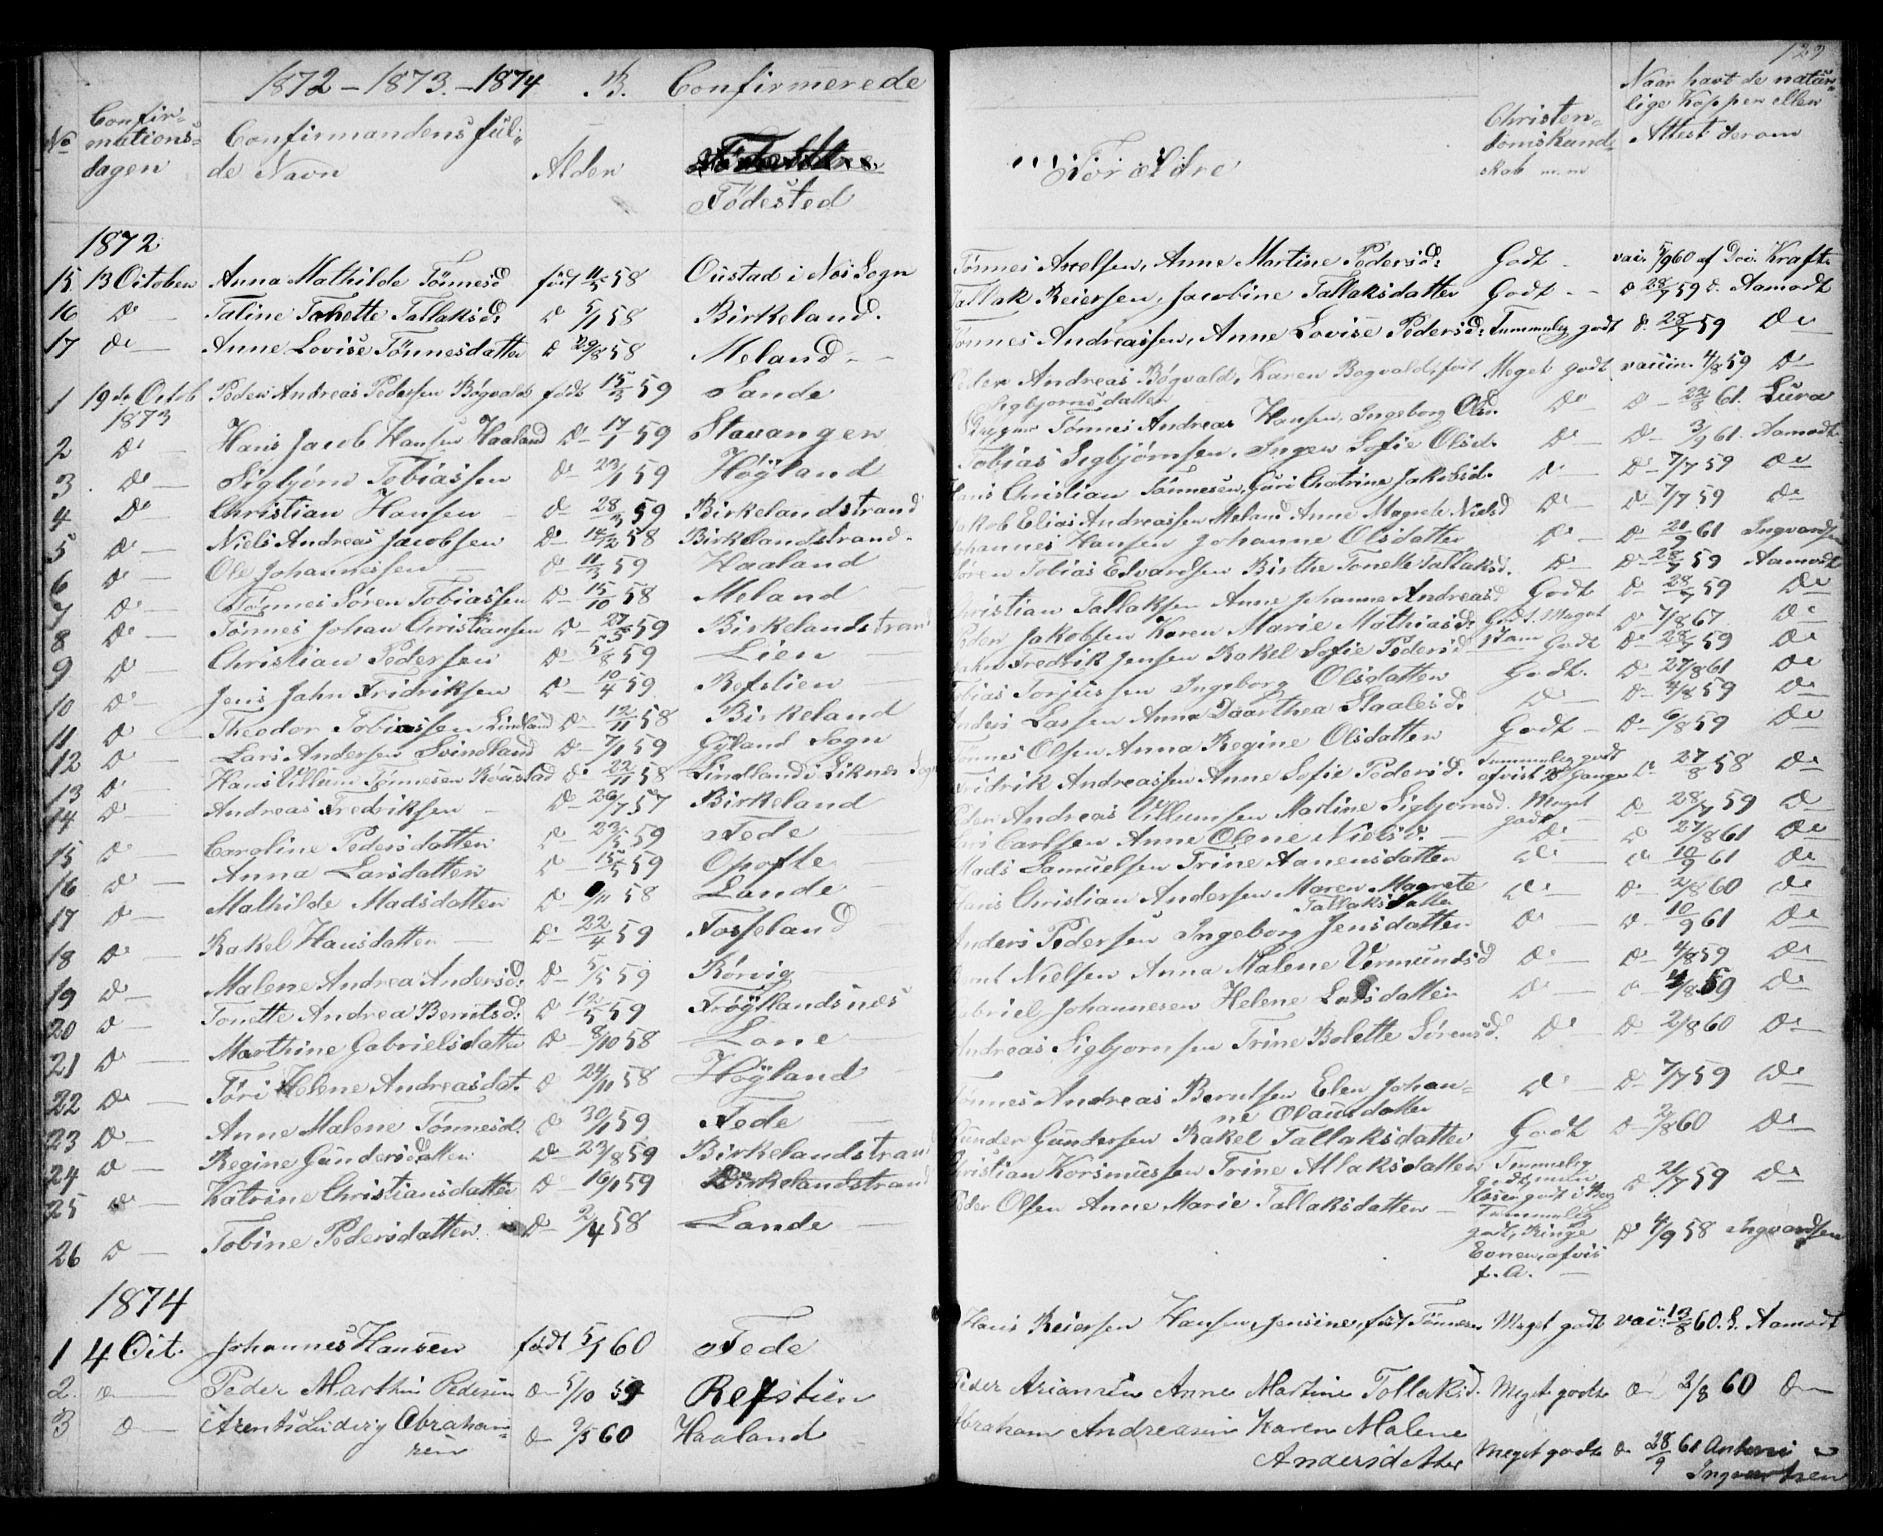 1872 – 1873. – 1874 B. Confirmerede
129
No Confirmationsdagen Confirmandens fulde Navn Alden Fødested Forældre Christendomskundskab m.m Naar havt de naturlige Kopper eller Attest derom
1872
15 13 October Anna Mathilde Tønnesd født 11/5 58 Oustad i Næs Sogn Tønnes Axelsen, Anne Martine Pedersd: Godt - vaci. 5/9 60 af Doc. Kraft
16 Do Tatine Tonette Tallaksd: D 5/1 58 Birkeland. Tallak Reiersen, Jacobine Tallaksdatter Godt - D 28/7 59 Aamodt
17 do Anne Lovise Tønnesdatter D 29/8 58 Meland Tønnes Andreassen, Anne Lovise Pedersd: Tummelig godt d. 28/7 59 Do
1 19de Octob 1873 Peder Andreas Pedersen Bøgvald født 15/3 59 Sande Peder Andreas Bøgvald, Karen Bøgvald, født Sigbjørnsdatter Meget godt vaccin. 4/8 59 Do
2 Do Hans Jacob Hansen Haaland Do 17/1 59 Stavanger Tønnes Andreas Hansen, Ingeborg Olsd. Do D 22/8 61. Lura
3 Do Sigbjørn Tobiassen Do 23/1 59 Høyland Tobias Sigbjørnsen, Inger Sofie Olsd. Do Do 3/9 61. Aamodt
4 Do Christian Hansen D 28/3 59 Birkelandstrand Hans Christian Tønnesen, Guri Chatrine Jakobsd. D Do 7/7 59 Do
5 Do Niels Andreas Jacobsen Do 14/12 58 Birkelandstrand. Jakob Elias Andreassen Meland Anne Magrete Nielsd Do Do 7/7 59 do
6 do Ole Johannessen D 11/3 59 Haaland Johannes Hansen Johanne Olsdatter Do D 21/9 61 Ingvardsen
7 Do Tønnes Søren Tobiassen Do 15/10 58 Meland Søren Tobias Edvardsen Birthe Tonette Tallaksd. Do Do 28/7 59 Aamodt
8 do Tønnes Johan Christiansen D 27/5 59 Birkelandstrand Christian Tallaksen Anne Johanne Andreasd Godt D 28/7 59 Do
9 Do Christian Pedersen D 5/8 59 Lien Peder Jakobsen Karen Marie Mathiasd: Godt. Meget D 7/8 67 Do
10 Do Jens Jahn Fridriksen D 10/4 59 Refslien Jahn Fredrik Jensen Rakel Sofie Pedersd Godt Do 28/7 59 Do
11 Do Theodor Tobiassen Lindland Do 12/11 58 Birkeland Tobias Torjussen Ingeborg Olsdatter Godt. Do 27/8 61 Do
12 Do Lars Andersen Svindland Do 7/1 59 Gyland Sogn Anders Larsen Anna Daarthea Staalesd. Do Do 4/8 59 Do
13 D Hans Villum Tønnesen Røiestad Do 22/11 58 Lindland i Liknes Sogn Tønnes Olsen Anna Regine Olsdatter Godt Do 6/8 59 Do
14 Do Andreas Fredriksen Do 26/7 57 Birkeland Fridrik Andreassen Anne Sofie Pedersd. Tummelig godt afvist 2 Gange D 27/8 58 Do
15 Do Caroline Pedersdatter D 23/5 59 Fede Peder Andreas Villumsen Martine Sigbjørnsd. Meget godt D 28/7 59 Do
16 Do Anna Larsdatter D 15/5 59 Opofte Lars Carlsen Anne Olene Nielsd: Do D 27/8 61 Do
17 D Mathilde Madsdatter D 9/11 58 Lande Mads Samuelsen Trine Aanensdatter Do D 10/9 61 Do
18 Do Rakel Hansdatter Do 22/4 59 Fosseland Hans Christian Andersen Maren Magrete Tallaksdatter Do Do 2/8 60 Do
19 Do Malene Andrea Andersd: Do 5/5 59 Rørvig Anders Pedersen Ingeborg Jensdatter D D 10/9 61 Do
20 D Tonette Andrea Berntsd: Do 12/5 59 Frøylandsnes Bernt Nielsen Anna Malene Vermundsd Do Do 4/8 59 Do
21 Do Marthine Gabrielsdatter Do 8/10 58 Lone Gabriel Johannesen Helene Larsdatter D D 4/8 59 Do
22 Do Tøri Helene Andreasdat. D 24/11 58 Høyland Andreas Sigbjørnsen Trine Bolette Sørensd. Do D 2/8 60 Do
23 Do Anne Malene Tønnesd. D 30/1 59 Fede Tønnes Andreas Berntsen Elen Johanne Olausdatter Do Do 7/7 59 Do
24 Do Regine Gundersdatter Do 23/8 59 Birkelandstrand Gunder Gundersen Rakel Tallaksdatter Godt D 2/8 60 Do
25 Do Katrine Christiansdatter Do 16/1 59 Birkelandstrand Christian Korsmussen Trine Allaksdatter Tummelig godt men læser godt i Bog D 21/7 59 Do
26 D Tobine Pedersdatter Do 2/4 58 Lande Peder Olsen Anne Marie Tallaksdatter Tummelig godt, Ringe Evner, afvis f. A. D 4/9 58 Ingvardsen
1874
1 4 Oct. Johannes Hansen født 5/1 60 Fede Hans Reiersen Hansen, Jensine, født Tønnesen Meget godt vac. 13/8 60. S. Aamodt
2. D Peder Marthin Pedersen D 5/10 59 Refstien Peder Ariansen Anne Martine Tollaksd. Meget godt D 2/8 60 D
3 D Arent Ludvig Abrahamsen D 2/5 60 Haaland Abraham Andreasen Karen Malene Andersdatter Meget godt D 28/9 61 Anton Ingvartsen